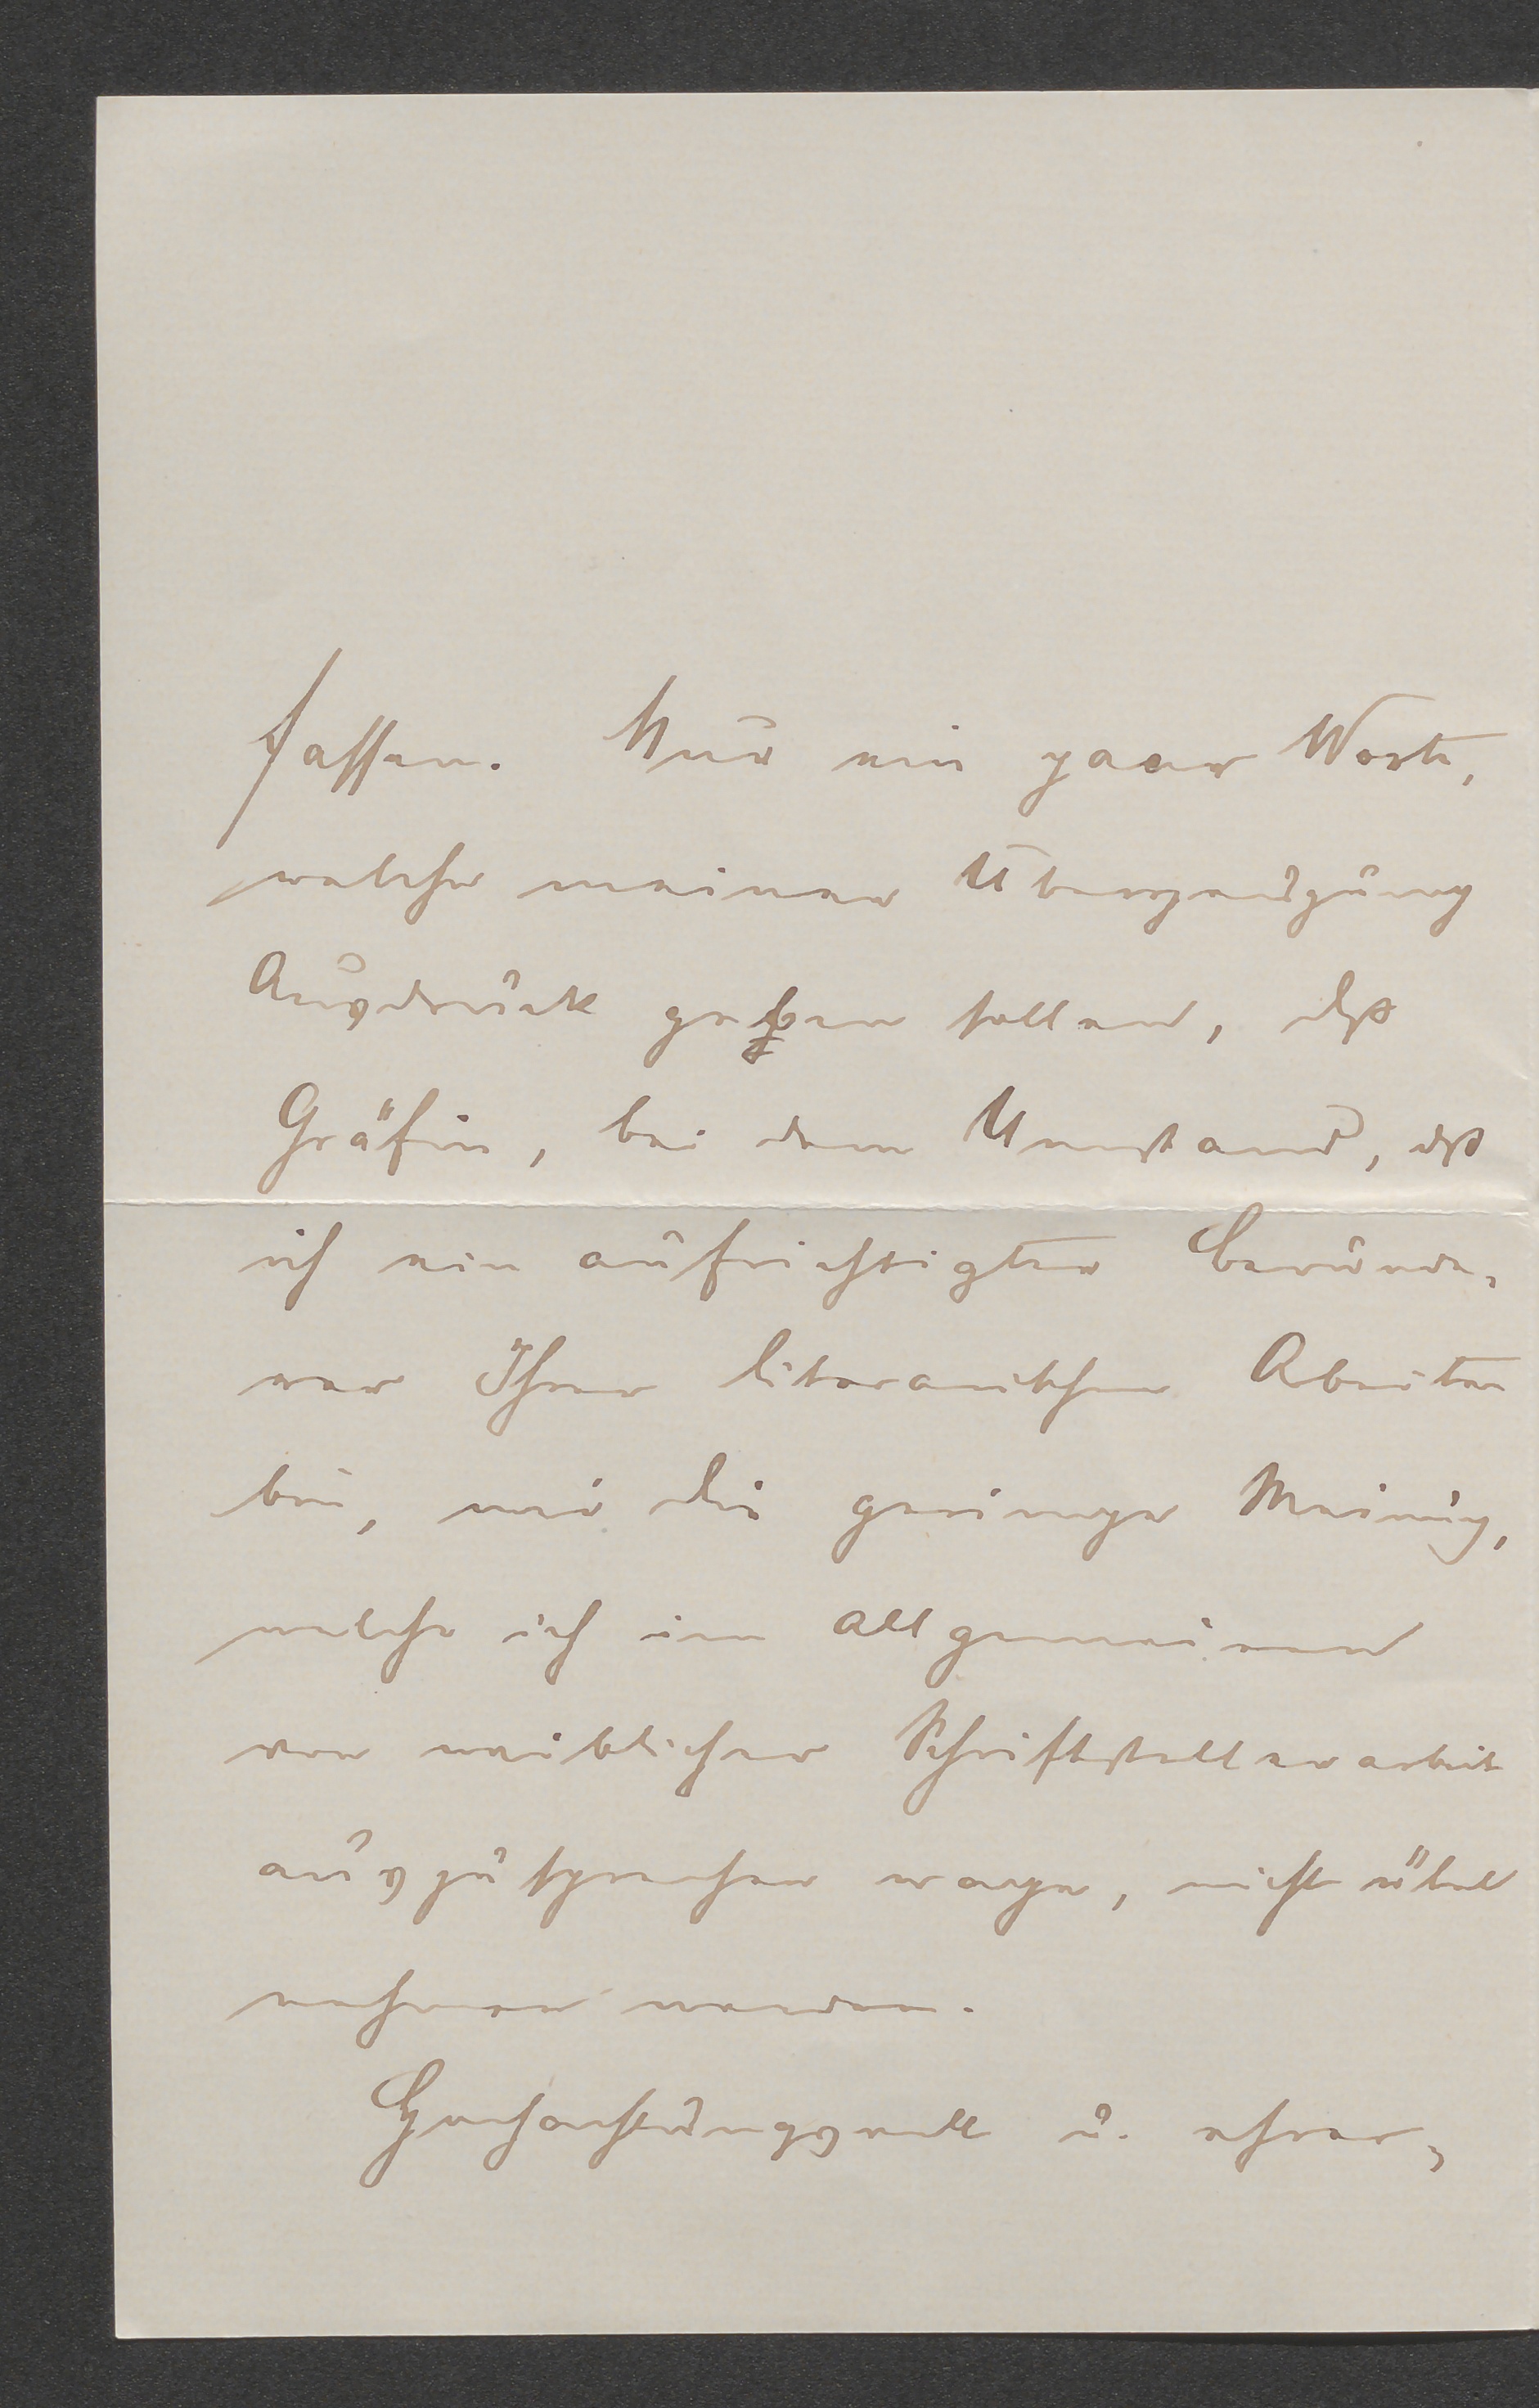 fassen. Nur ein paar Worte,
welche meiner Überzeugung
Ausdruck geben sollen, dß
Gräfin, bei dem Umstand, dß
ich ein aufrichtigster Bewunde-
rer Ihrer literarischen Arbeiten
bin, mir die geringe Meinug,
welche ich im allgemeinen
von weiblicher Schriftstellerarbeit
auszusprechen wage, nicht übel
nehmen werden.
Hochachtungsvoll u. ehrer-